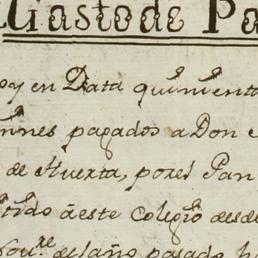 Gasto de Pa
oy en Data quinient
nnes pagados a Don
de Huerta, por el Pan
tido á este Colegio desde
Nou.re del año pasado h